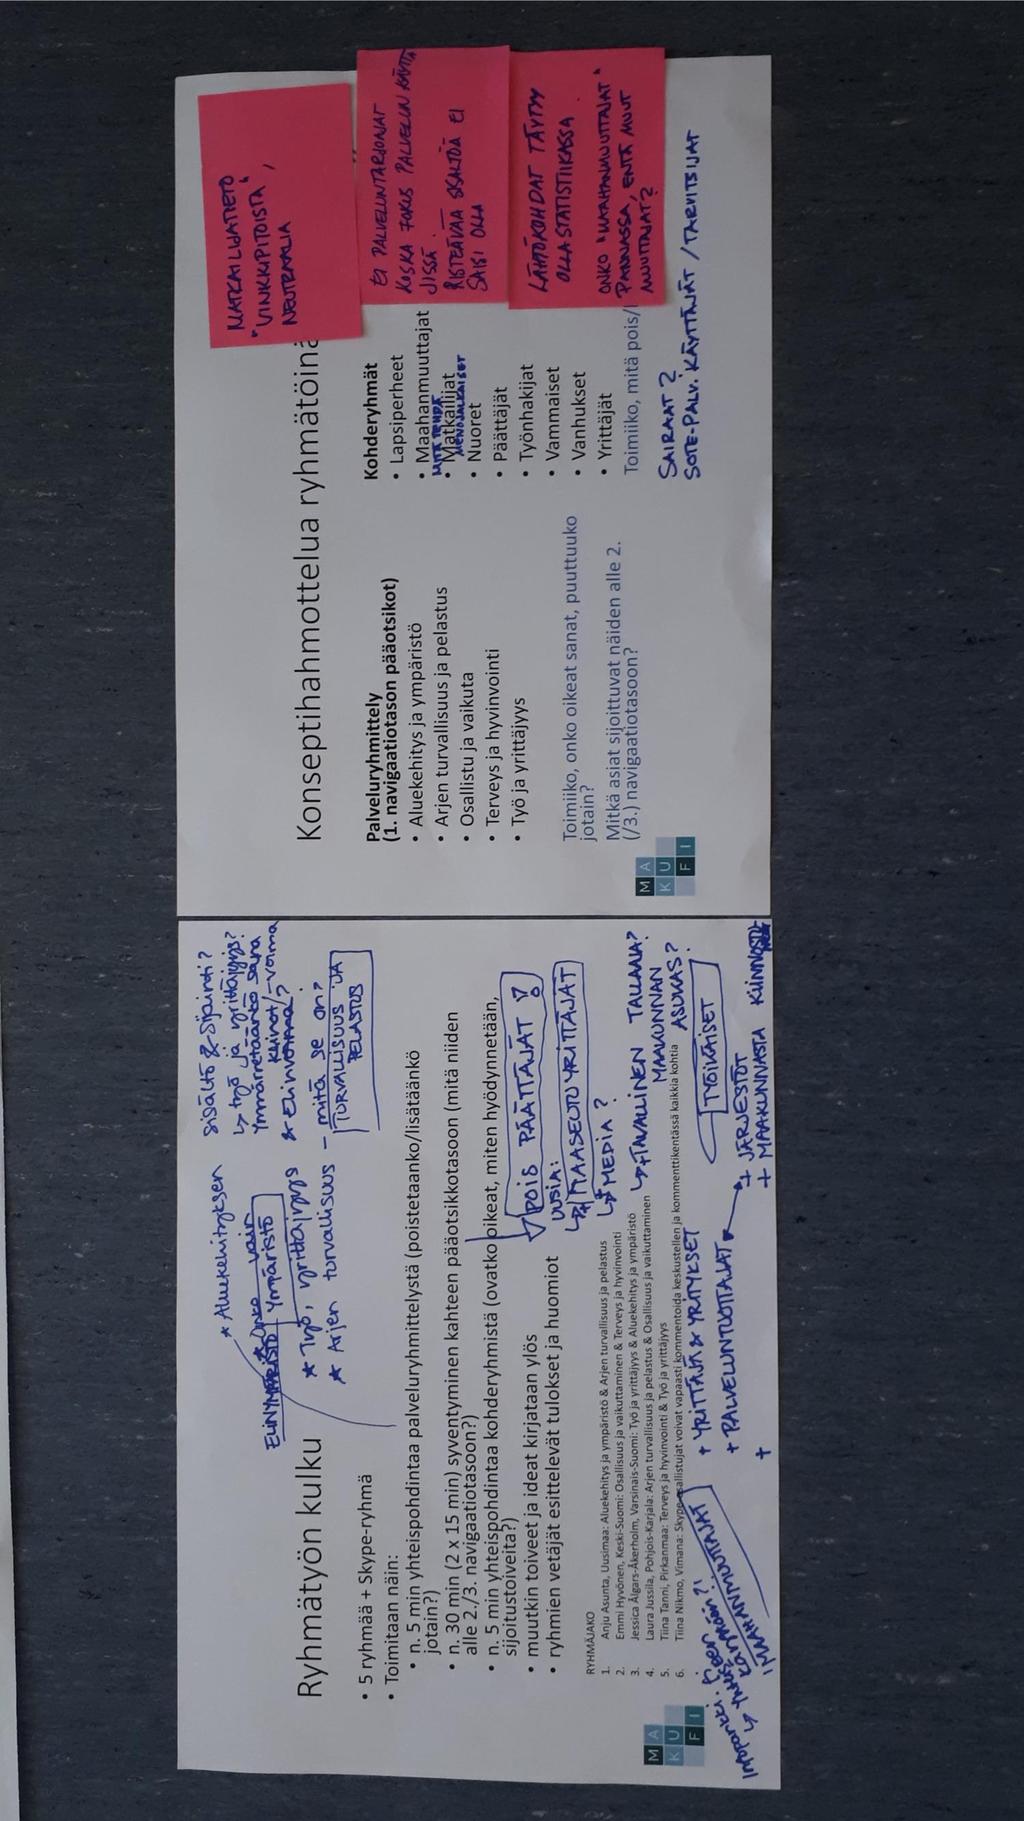 Ryhmätyön kulku
• 5 ryhmää + Skype-ryhmä
• Toimitaan näin:
• n. 5 min yhteispohdintaa palveluryhmittelystä (poistetaanko/lisätäänkö
jotain?)
• n. 30 min (2 x 15 min) syventyminen kahteen pääotsikkotasoon (mitä niiden
alle 2./3. navigaatiotasoon?)
• n. 5 min yhteispohdintaa kohderyhmistä (ovatko oikeat, miten hyödynnetään,
sijoitustoiveita?)
• muutkin toiveet ja ideat kirjataan ylös
• ryhmien vetäjät esittelevät tulokset ja huomiot
RYHMÄJAKO
1. Anju Asunta, Uusimaa: Aluekehitys ja ympäristö & Arjen turvallisuus ja pelastus
2. Emmi Hyvönen, Keski-Suomi: Osallisuus ja vaikuttaminen & Terveys ja hyvinvointi
3. Jessica Ålgars-Åkerholm, Varsinais-Suomi: Työ ja yrittäjyys & Aluekehitys ja ympäristö
4. Laura Jussila, Pohjois-Karjala: Arjen turvallisuus ja pelastus & Osallisuus ja vaikuttaminen
5. Tiina Tanni, Pirkanmaa: Terveys ja hyvinvointi & Työ ja yrittäjyys
6. Tiina Nikmo, Vimana: Skype-osallistujat voivat vapaasti kommentoida keskustellen ja kommenttikentässä kaikkia kohtia
MA
KU
FI
* Aluekehityksen
* onko vain
ELINYMPÄRISTÖ Ympäristö
* Työ, yrittäjyys
* Arjen turvallisuus - mitä se on?
TURVALLISUUS JA
PELASTUS
Sisältö & Sijainti?
↳ työ ja yrittäjyys?
Ymmärretäänkö sana
keinot/-voima
& Elinvoima?
POIS PÄÄTTÄJÄT?
UUSIA:
↳ MAASEUTUYRITTÄJÄT
↳ MEDIA?
↳ TAVALLINEN TALLAAJA?
MAAKUNNAN
ASUKAS?
TYÖIKÄISET
+ YRITTÄJÄ & YRITYKSET
+ PALVELUNTUOTTAJAT
+ JÄRJESTÖT
+ MAAKUNNASTA KIINNOST
+
MAAHANMUUTTAJAT
Konseptihahmottelua ryhmätöinä
Palveluryhmittely
(1. navigaatiotason pääotsikot)
• Aluekehitys ja ympäristö
• Arjen turvallisuus ja pelastus
• Osallistu ja vaikuta
• Terveys ja hyvinvointi
• Työ ja yrittäjyys
Toimiiko, onko oikeat sanat, puuttuuko
jotain?
Mitkä asiat sijoittuvat näiden alle 2.
(/3.) navigaatiotasoon?
MA
KU
FI
Kohderyhmät
• Lapsiperheet
• Maahanmuuttajat
MITÄ TEHDÄ
• Matkailijat
MENOJALKAISET
• Nuoret
• Päättäjät
• Työnhakijat
• Vammaiset
• Vanhukset
• Yrittäjät
Toimiiko, mitä pois/l
SAIRAAT?
SOTE-PALV. KÄYTTÄJÄT / TARVITSIJAT
MATKAILIJATIETO
"VINKKIPITOISTA",
NEUTRAALIA
EI PALVELUNTARJOAJAT
KOSKA FOKUS PALVELUN KÄYTTÄ
JISSÄ.
RISTEÄVÄÄ SISÄLTÖÄ EI
SAISI OLLA
LÄHTÖKOHDAT TÄYTYY
OLLA STATISTIIKASSA
ONKO "MAAHANMUUTTAJAT"
PANNASSA, ENTÄ MUUT
MUUTTAJAT?